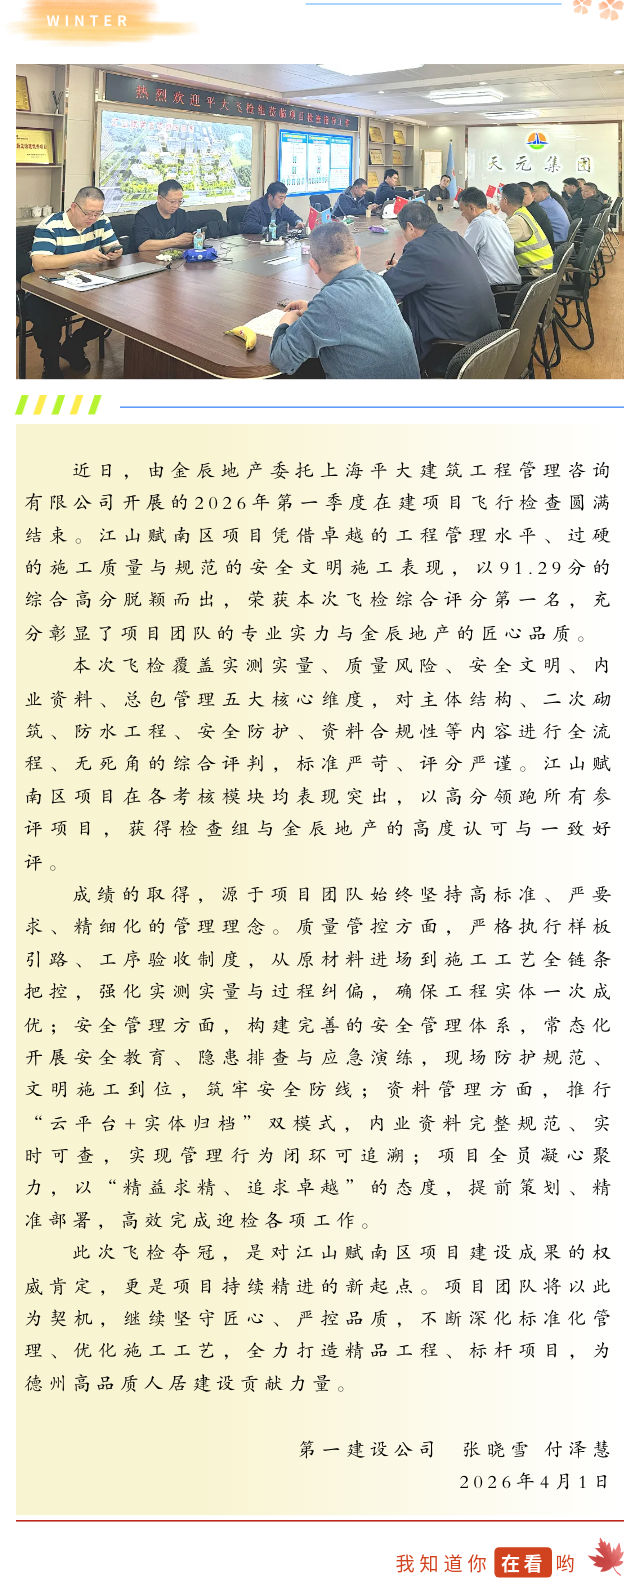 WINTER
热烈欢迎平大飞检组莅临项目检查指导工作
天元集团
近日，由金辰地产委托上海平大建筑工程管理咨询
有限公司开展的2026年第一季度在建项目飞行检查圆满
结束。江山赋南区项目凭借卓越的工程管理水平、过硬
的施工质量与规范的安全文明施工表现，以91.29分的
综合高分脱颖而出，荣获本次飞检综合评分第一名，充
分彰显了项目团队的专业实力与金辰地产的匠心品质。
本次飞检覆盖实测实量、质量风险、安全文明、内
业资料、总包管理五大核心维度，对主体结构、二次砌
筑、防水工程、安全防护、资料合规性等内容进行全流
程、无死角的综合评判，标准严苛、评分严谨。江山赋
南区项目在各考核模块均表现突出，以高分领跑所有参
评项目，获得检查组与金辰地产的高度认可与一致好
评。
成绩的取得，源于项目团队始终坚持高标准、严要
求、精细化的管理理念。质量管控方面，严格执行样板
引路、工序验收制度，从原材料进场到施工工艺全链条
把控，强化实测实量与过程纠偏，确保工程实体一次成
优；安全管理方面，构建完善的安全管理体系，常态化
开展安全教育、隐患排查与应急演练，现场防护规范、
文明施工到位，筑牢安全防线；资料管理方面，推行
“云平台+实体归档”双模式，内业资料完整规范、实
时可查，实现管理行为闭环可追溯；项目全员凝心聚
力，以“精益求精、追求卓越”的态度，提前策划、精
准部署，高效完成迎检各项工作。
此次飞检夺冠，是对江山赋南区项目建设成果的权
威肯定，更是项目持续精进的新起点。项目团队将以此
为契机，继续坚守匠心、严控品质，不断深化标准化管
理、优化施工工艺，全力打造精品工程、标杆项目，为
德州高品质人居建设贡献力量。
第一建设公司 张晓雪 付泽慧
2026年4月1日
我知道你在看哟